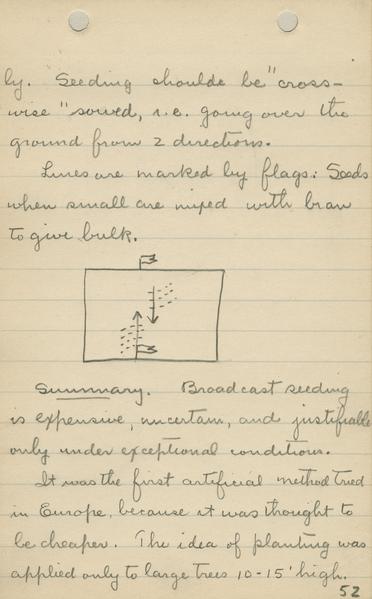 ly. Seeding shoulde be "cross-
wise" sowed, i.e. going over the
ground from 2 directions.
Lines are marked by flags: Seeds
when small are mixed with bran
to give bulk.
Summary. Broadcast seeding
is expensive, uncertain, and justifiable
only under exceptional conditions.
It was the first artificial method tried
in Europe, because it was thought to
be cheaper. The idea of planting was
applied only to large trees 10-15' high.
52